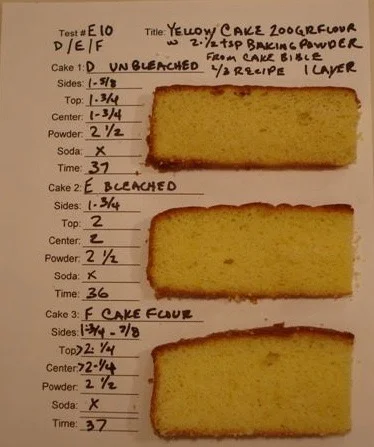 Test # E10 Title: YELLOW CAKE 200GR FLOUR
D/E/F W 2-1/2 tsp BAKING POWDER
FROM CAKE BIBLE
Cake 1: D UNBLEACHED 1/2 RECIPE 1 LAYER
Sides: 1-5/8
Top: 1-3/4
Center: 1-3/4
Powder: 2 1/2
Soda: X
Time: 37
Cake 2: E BLEACHED
Sides: 1-3/4
Top: 2
Center: 2
Powder: 2 1/2
Soda: X
Time: 36
Cake 3: F CAKE FLOUR
Sides: 1-3/4 - 7/8
Top: >2-1/4
Center: >2-1/4
Powder: 2 1/2
Soda: X
Time: 37